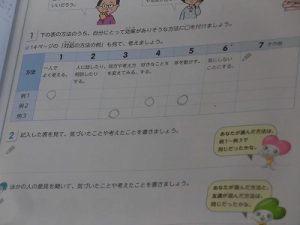 いいだろう。
1 下の表の方法のうち、自分にとって効果がありそうな方法に○を付けましょう。
※14ページの「対処の方法の例」も見て、考えましょう。
方法
1 一人でよく考える。
2 人に話したり、相談したりする。
3 見方や考え方を変えてみる。
4 好きなことをする。
5 体を動かす。
6 気にしないことにする。
7 その他
例1 ○
例2 ○ ○
例3 ○
2 記入した表を見て、気づいたことや考えたことを書きましょう。
あなたが選んだ方法は、
例1〜例3で
同じだったかな。
ほかの人の意見を聞いて、気づいたことや考えたことを書きましょう。
あなたが選んだ方法と、
友達が選んだ方法は、
同じだったかな。